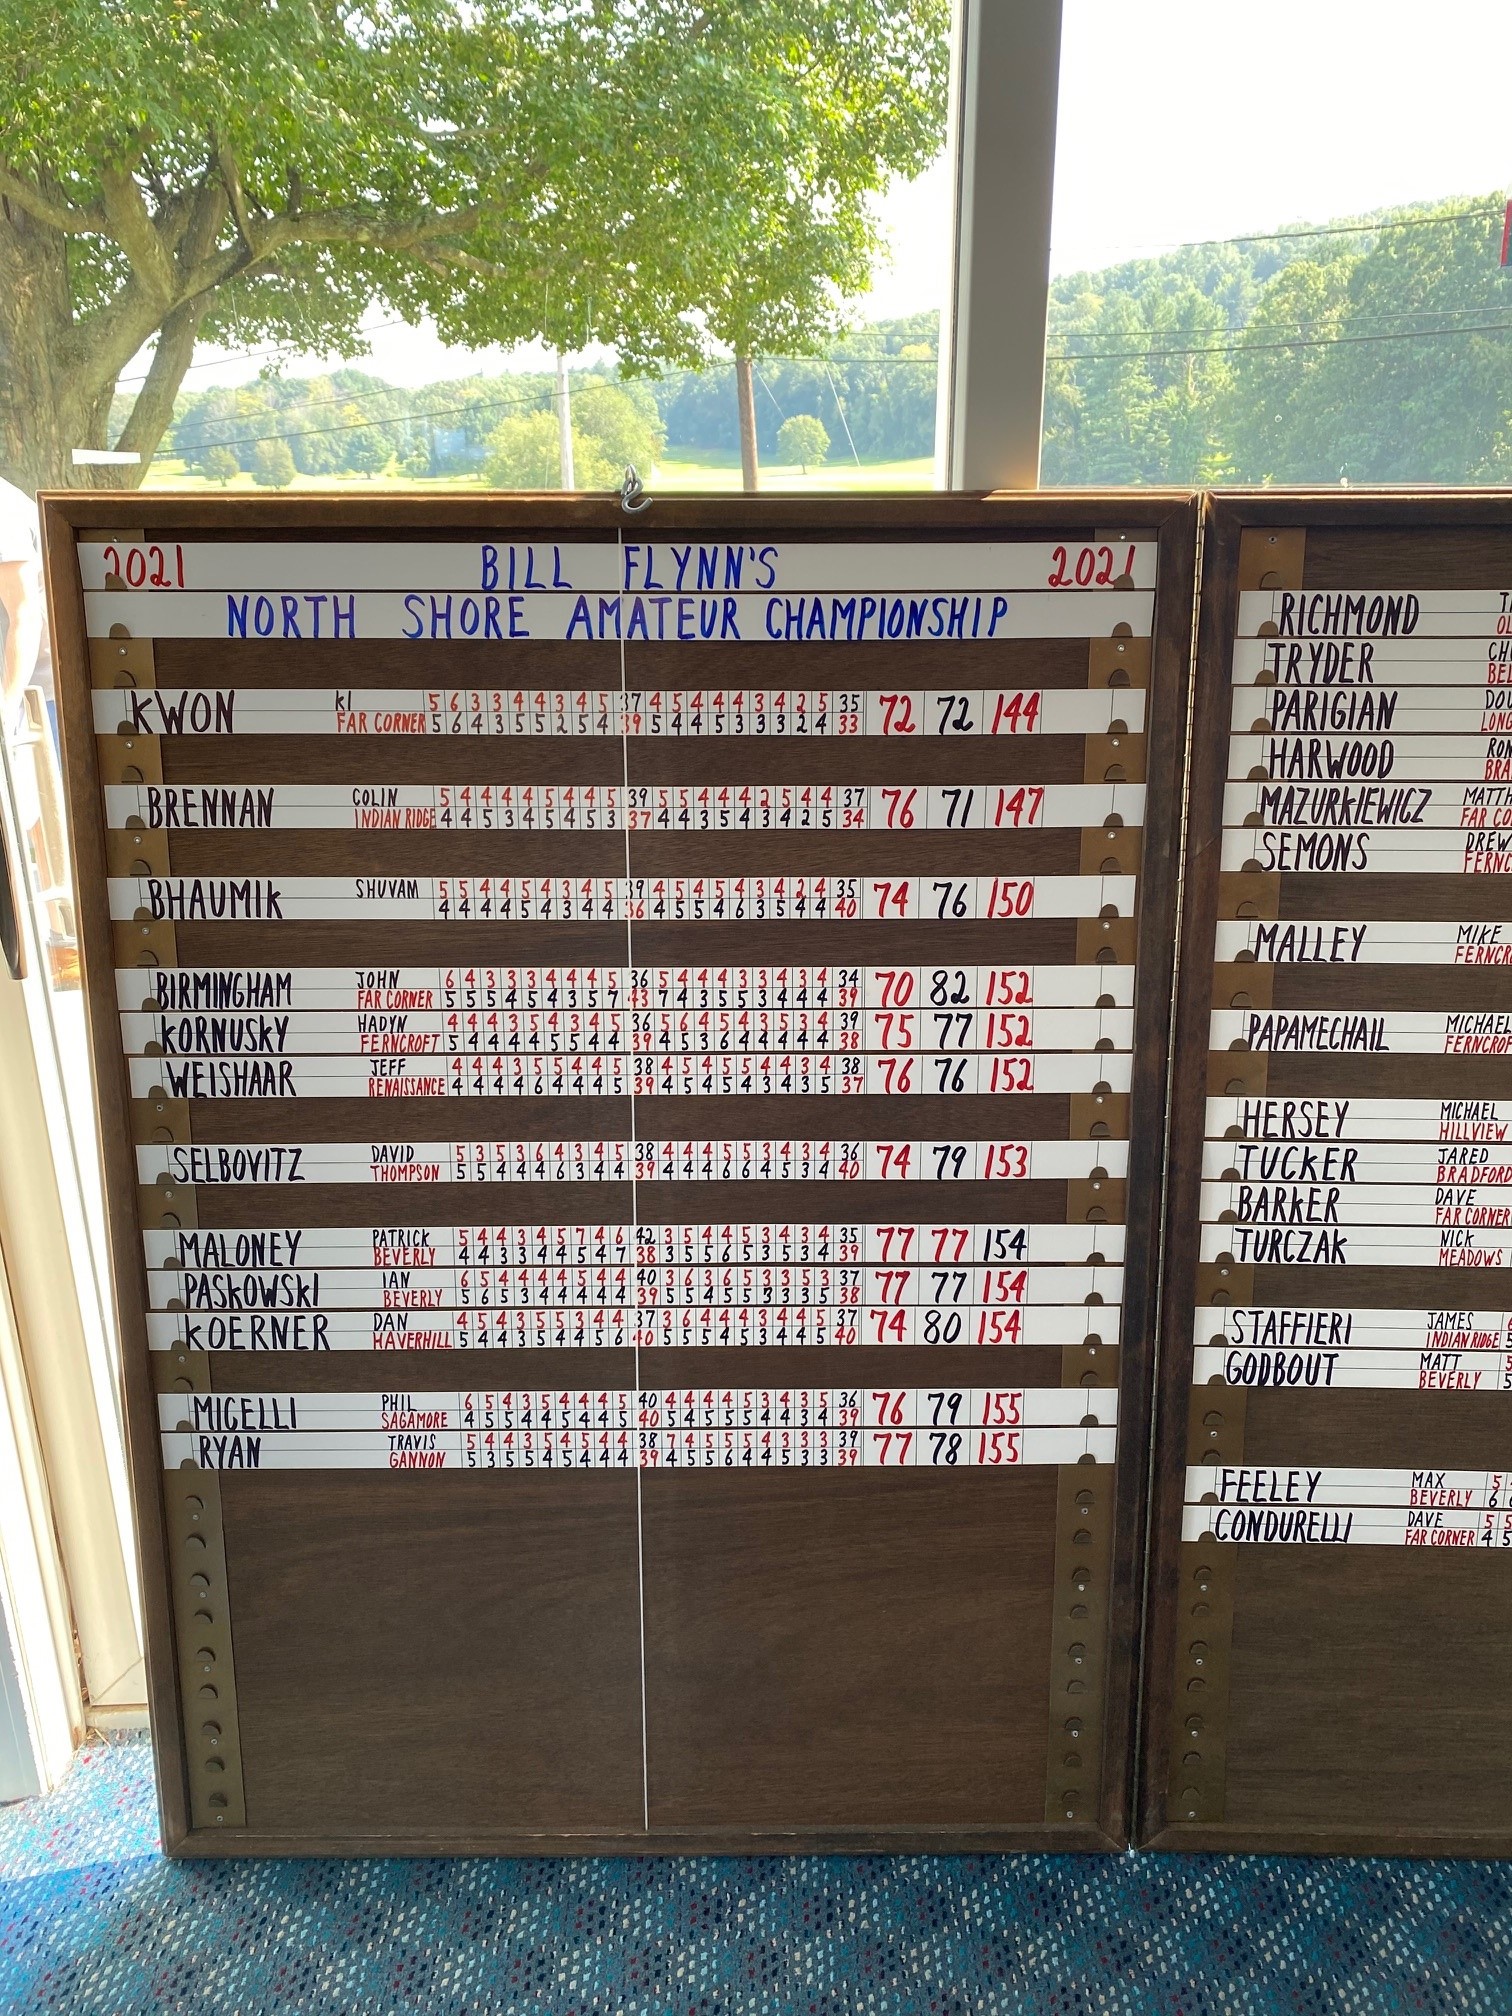 2021 BILL FLYNN'S 2021
NORTH SHORE AMATEUR CHAMPIONSHIP
KWON KI 5 6 3 3 4 4 3 4 5 37 4 5 4 4 4 3 4 2 5 35 72 72 144
FAR CORNER 5 6 4 3 5 5 2 5 4 39 5 4 4 5 3 3 3 2 4 33
BRENNAN COLIN 5 4 4 4 4 5 4 4 5 39 5 5 4 4 4 2 5 4 4 37 76 71 147
INDIAN RIDGE 4 4 5 3 4 5 4 5 3 37 4 4 3 5 4 3 4 2 5 34
BHAUMIK SHUVAM 5 5 4 4 5 4 3 4 5 39 4 5 4 5 4 3 4 2 4 35 74 76 150
4 4 4 4 5 4 3 4 4 36 4 5 5 4 6 3 5 4 4 40
BIRMINGHAM JOHN 6 4 3 3 3 4 4 4 5 36 5 4 4 4 3 3 4 3 4 34 70 82 152
FAR CORNER 5 5 5 4 5 4 3 5 7 43 7 4 3 5 5 3 4 4 4 39
KORNUSKY HADYN 4 4 4 3 5 4 3 4 5 36 5 6 4 5 4 3 5 3 4 39 75 77 152
FERNCROFT 5 4 4 4 4 5 5 4 4 39 4 5 3 6 4 4 4 4 4 38
WEISHAAR JEFF 4 4 4 3 5 5 4 4 5 38 4 5 4 5 5 4 4 3 4 38 76 76 152
RENAISSANCE 4 4 4 4 6 4 4 4 5 39 4 5 4 5 4 3 4 3 5 37
SELBOVITZ DAVID 5 3 5 3 6 4 3 4 5 38 4 4 4 5 5 3 4 3 4 36 74 79 153
THOMPSON 5 5 4 4 4 6 3 4 4 39 4 4 4 6 6 4 5 3 4 40
MALONEY PATRICK 5 4 4 3 4 5 7 4 6 42 3 5 4 4 5 3 4 3 4 35 77 77 154
BEVERLY 4 4 3 3 4 4 5 4 7 38 3 5 5 6 5 3 4 3 5 39
PASKOWSKI IAN 6 5 4 4 4 4 5 4 4 40 3 6 3 6 5 3 3 5 3 37 77 77 154
BEVERLY 5 6 5 3 4 4 4 4 4 39 5 4 5 5 5 3 3 3 5 38
KOERNER DAN 4 5 4 3 5 5 3 4 4 37 3 6 4 4 4 3 4 4 5 37 74 80 154
HAVERHILL 5 4 4 3 5 4 4 5 6 40 5 5 5 4 5 3 4 4 5 40
MICELLI PHIL 6 5 4 3 5 4 4 4 5 40 4 4 4 4 5 3 4 3 5 36 76 79 155
SAGAMORE 4 5 5 4 4 5 4 4 5 40 5 4 5 5 5 4 4 3 4 39
RYAN TRAVIS 5 4 4 3 5 4 5 4 4 38 7 4 5 5 5 4 3 3 3 39 77 78 155
GANNON 5 3 5 5 4 5 4 4 4 39 4 5 5 6 4 4 5 3 3 39
RICHMOND
TRYDER
BEL
PARIGIAN
LONG
HARWOOD
MAZURKIEWICZ MATTH
FAR CO
SEMONS DREW
FERNC
MALLEY MIKE
FERNCR
PAPAMECHAIL MICHAEL
FERNCROF
HERSEY MICHAEL
HILLVIEW
TUCKER JARED
BRADFORD
BARKER DAVE
FAR CORNER
TURCZAK NICK
MEADOWS
STAFFIERI JAMES
INDIAN RIDGE
GODBOUT MATT
BEVERLY
FEELEY MAX 5
BEVERLY 6
CONDURELLI DAVE 5 5
FAR CORNER 4 5